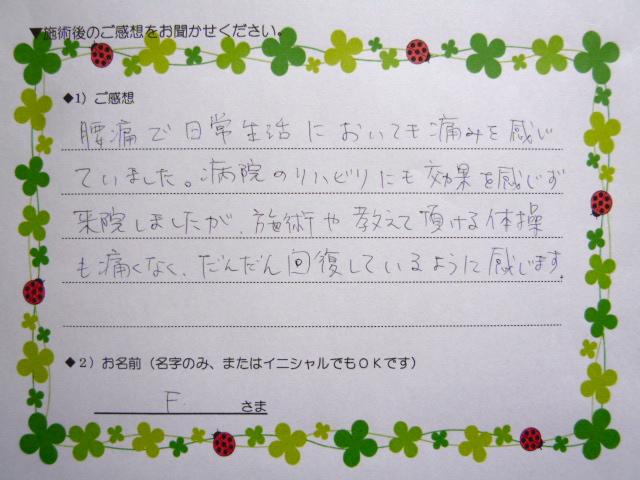 ▼施術後のご感想をお聞かせください。
◆1）ご感想
腰痛で日常生活においても痛みを感じ
ていました。病院のリハビリにも効果を感じず
来院しましたが、施術や教えて頂ける体操
も痛くなく、だんだん回復しているように感じます。
◆2）お名前（名字のみ、またはイニシャルでもＯＫです）
F. さま